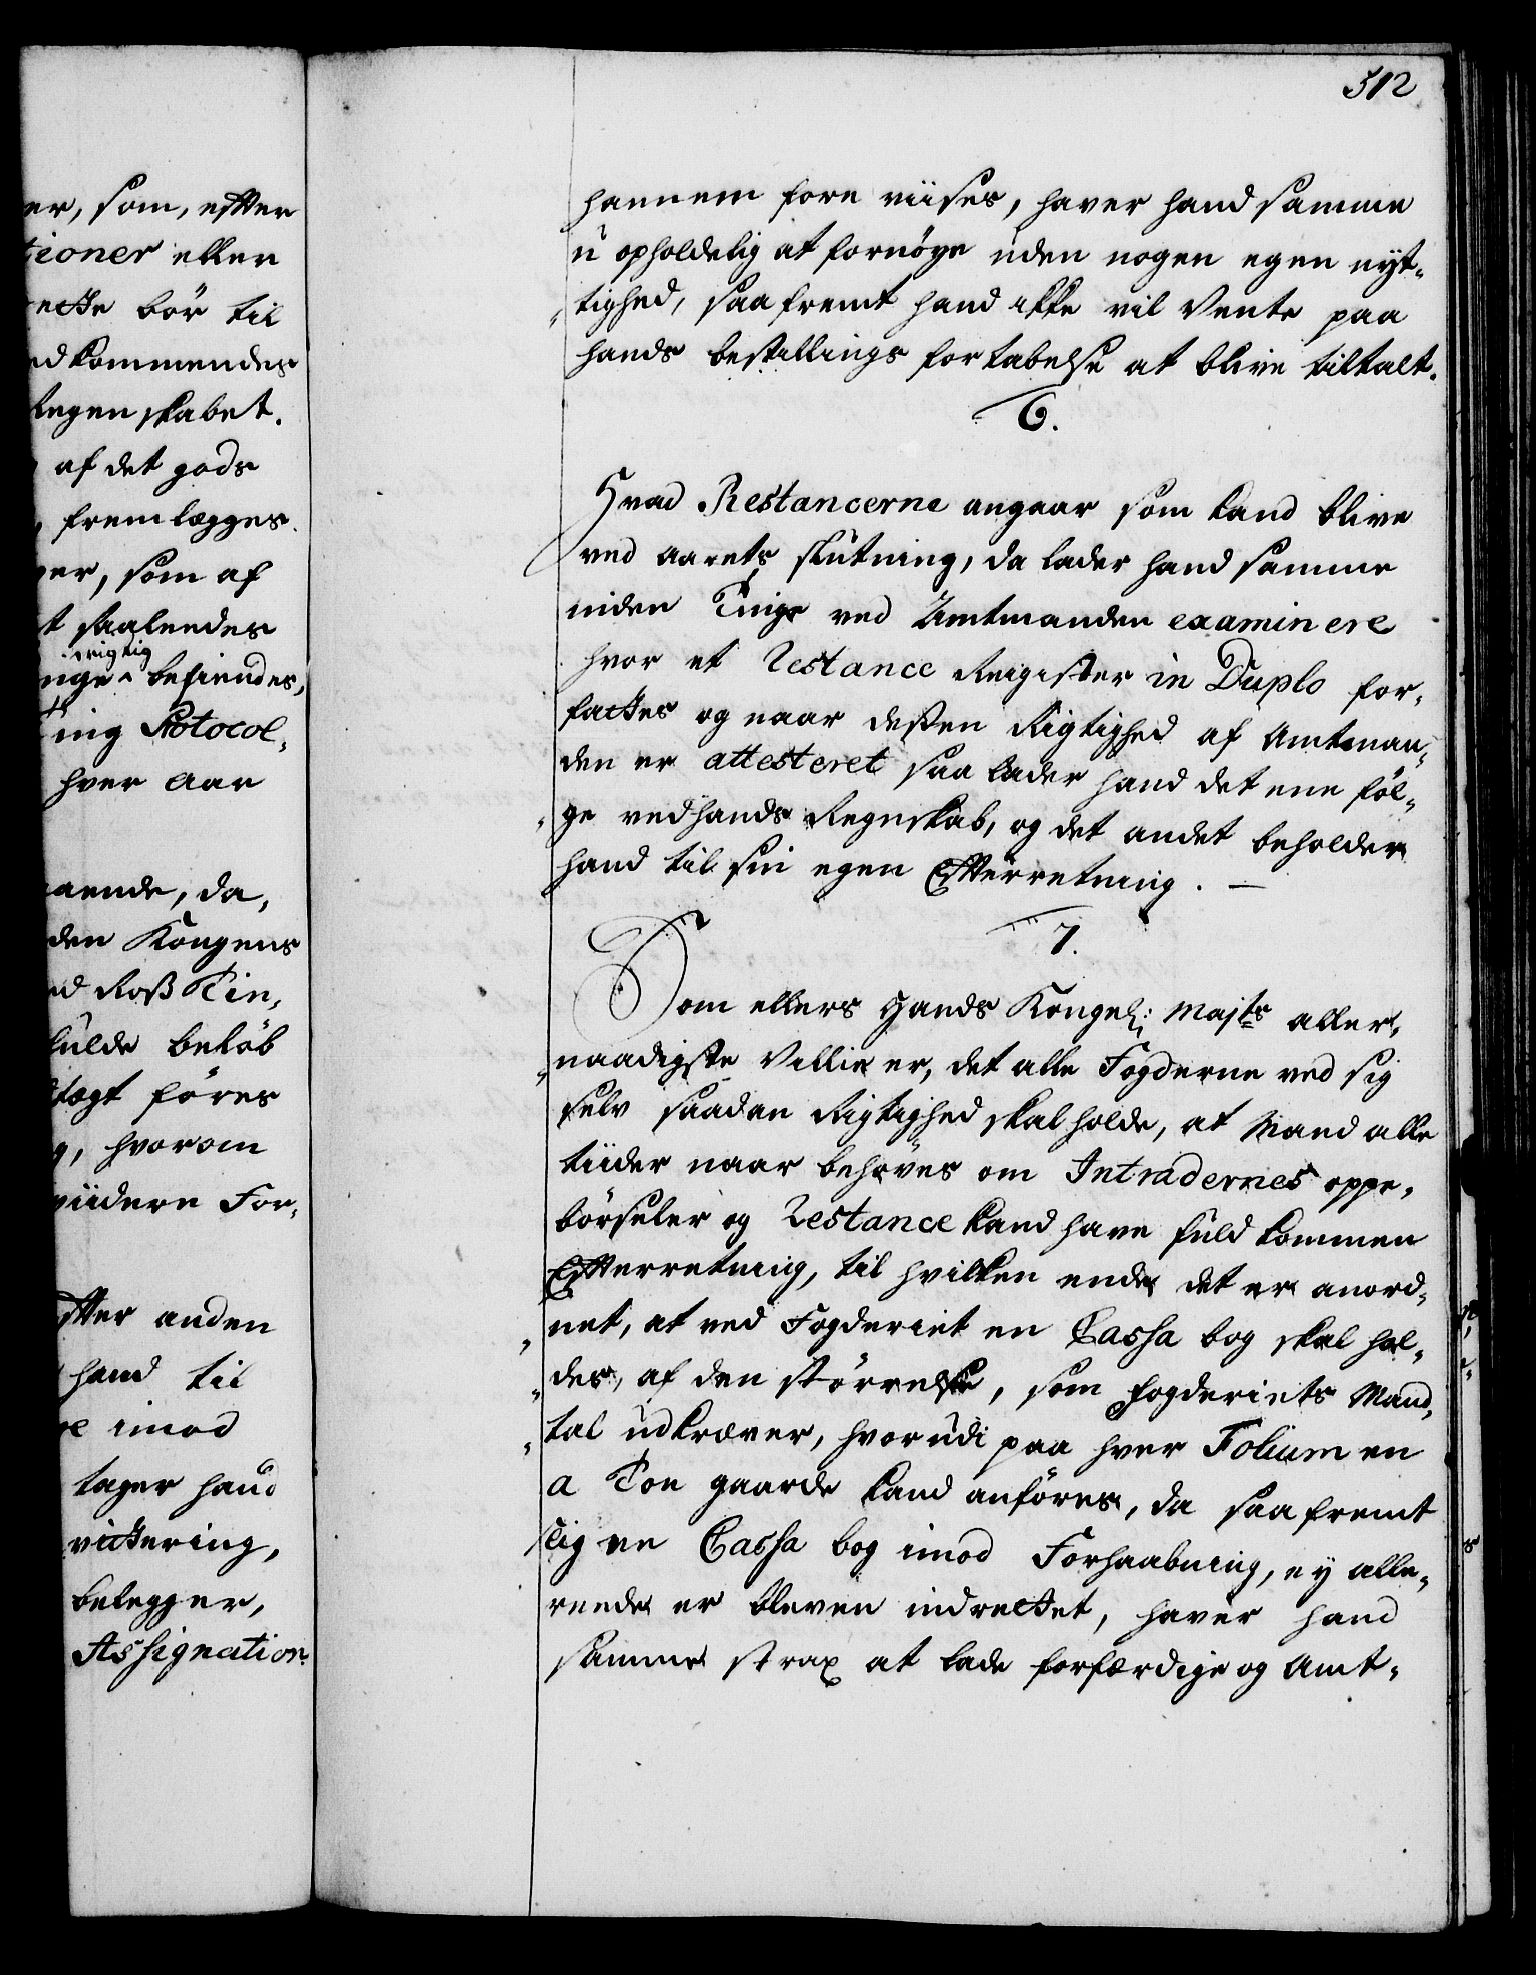 er, som, effter
tioner eller
ecke bör til
ed kommendes
Regenskabet.
af det gods
, fremlægges.
ger, som af
t saaledes
rigtig
nge ^ befindes,
Ting Protocol,
hver Aar
aende, da,
den Kongens
ed Roß Tin,
fulde beløb
tægt föres
g, hvorom
viidere For,
effter anden
hand til
e imod
tager hand
vittering,
belegger,
Assignation
512
hannem fore viises, haver hand samme
u opholdelig at fornöye uden nogen egen nyt-
tighed, saa fremt hand ikke vil Vente paa
hands bestillings fortabelse at blive tiltalt.
6.
Hvad Restancerne angaar som kand blive
ved aarets slutning, da lader hand samme
inden Tinge ved Amtmanden examinere
hvor et Restance Reigister in Duplo for-
fattes og naar deßen Rigtighed af Amtman-
den er attesteret saa lader hand det ene föl-
ge ved hands Regnskab, og det andet beholder
hand til sin egen Effterretning. —
7.
Som ellers Hands Kongel: Majts aller-
naadigste Villie er, det alle Fogderne ved sig
selv saadan Rigtighed skal holde, at Mand alle
tiider naar behöves om Intradernes oppe-
börseler og Restance kand have fuld kommen
Effterretning, til hvilken ende det er anord-
net, at ved Fogderiet en Cassa bog skal hol-
des, af den störrelse, som fogderiets Mand-
tal udkræver, hvorudi paa hver Folium en
a Toe gaarde kand anföres, da saa fremt
slig en Cassa bog imod Forhaabning, ey alle-
reede er bleven indrettet, haver hand
samme strax at lade forfærdige og Amt-